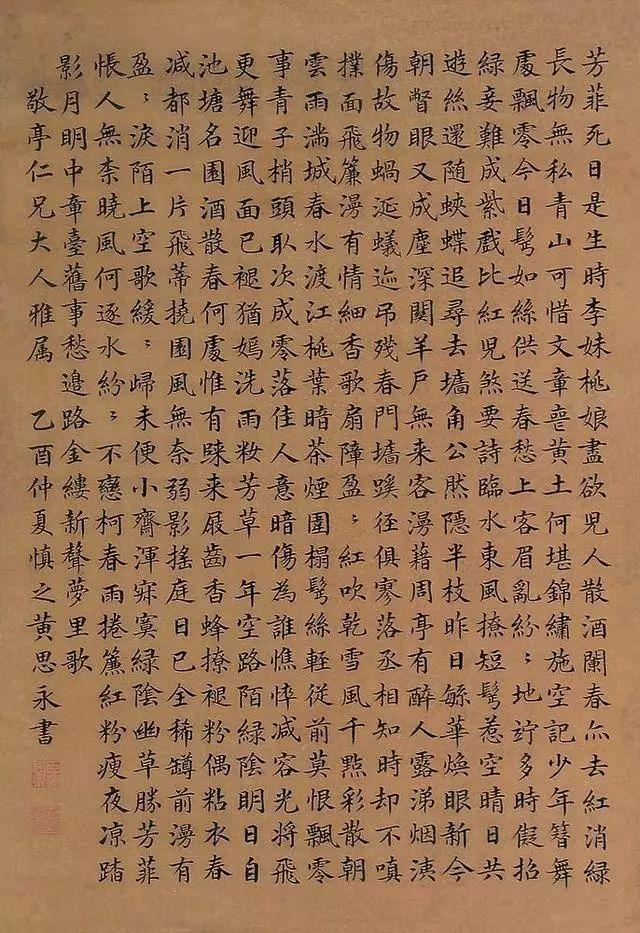 芳菲死日是生時李妹桃娘盡欲兒人散酒闌春亦去紅消綠
長物無私青山可惜文章喪黃土何堪錦繡施空記少年簪舞
處飄零今日鬂如絲供送春愁上客眉亂紛〻地竚多時假招
綠妾難成紫戲比紅兒煞要詩臨水東風撩短鬂惹空晴日共
遊絲還随蛺蝶追尋去墻角公然隱半枝昨日緐華煥眼新今
朝瞥眼又成塵深關羊戶無来客漫藉周亭有醉人露涕烟洟
傷故物蝸涎蟻迹吊殘春門墻蹊徑俱寥落丞相知時却不嗔
撲面飛簾漫有情細香歌扇障盈〻紅吹乾雪風千點彩散朝
雲雨滿城春水渡江桃葉暗茶煙圍榻鬂絲輕従前莫恨飄零
事青子梢頭取次成零落佳人意暗傷為誰憔悴减容光將飛
更舞迎風面已褪猶嫣洗雨妝芳草一年空路陌綠陰明日自
池塘名園酒散春何處惟有踈来屐齒香蜂撩褪粉偶粘衣春
减都消一片飛蒂撓園風無奈弱影搖庭日已全稀罇前漫有
盈〻淚陌上空歌緩〻歸未便小齋渾寂寞綠陰幽草勝芳菲
悵人無柰曉風何逐水紛〻不戀柯春雨捲簾紅粉瘦夜凉踏
影月明中章臺舊事愁邊路金縷新聲夢里歌
敬亭仁兄大人雅属 乙酉仲夏慎之黃思永書